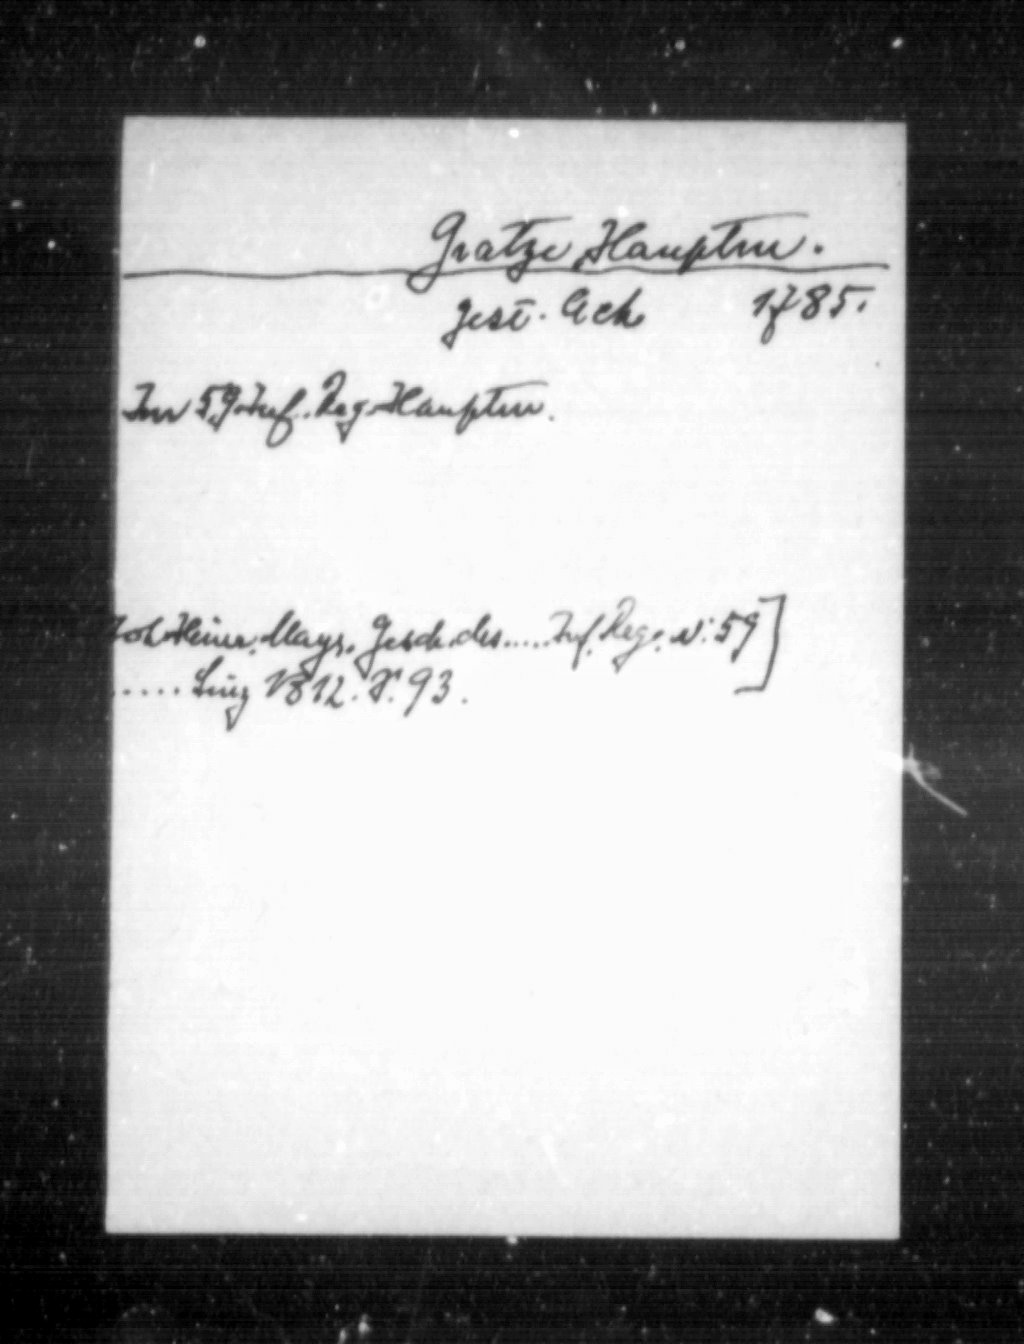 Gratze, Hauptm.
gest. Ack. 1785.
Im 59. Inf. Reg. Hauptm.
Joh. Heinr. Mayr. Gesch. des ..... Inf. Reg. N: 59]
..... Linz 1812. S. 93.